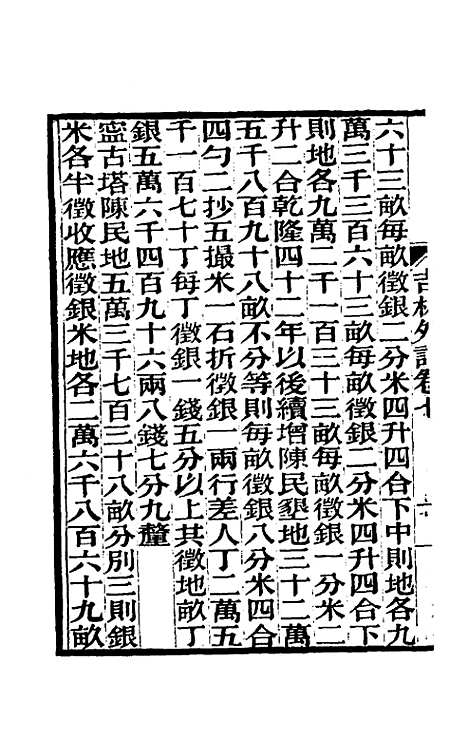 六十三畝每畝徵銀二分米四升四合下中則地各九
萬三千三百六十三畝每畝徵銀二分米四升四合下
則地各九萬二千一百三十三畝每畝徵銀一分米二
升二合乾隆四十二年以後續增陳民墾地三十二萬
五千八百九十八畝不分等則每畝徵銀八分米四合
四勺二抄五撮米一石折徵銀一兩行差人丁二萬五
千一百七十丁每丁徵銀一錢五分以上共徵地畝丁
銀五萬六千四百九十六兩八錢七分九釐
寍古塔陳民地五萬三千七百三十八畝分別三則銀
米各半徵收應徵銀米地各二萬六千八百六十九畝
吉林外記卷七